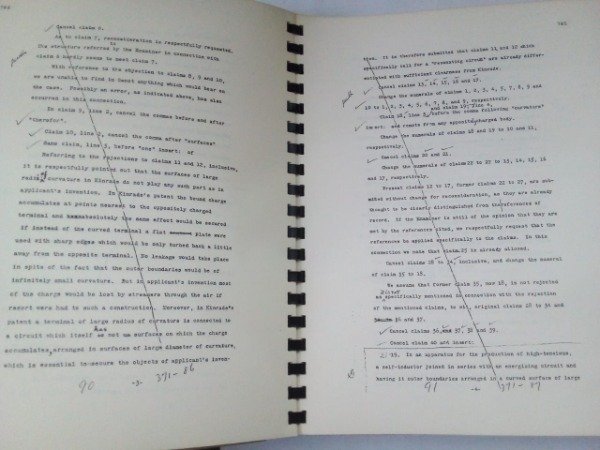 Cancel claim 6.
As to claim 7, reconsideration is respectfully requested.
The structure referred by the Examiner in connection with
claim 4 hardly seems to meet claim 7.
With reference to the objection to claims 8, 9 and 10,
we are unable to find in Scott anything which would bear on
the case. Possibly an error, as indicated above, has also
occurred in this connection.
In claim 9, line 2, cancel the commas before and after
"therefor".
Claim 10, line 2, cancel the comma after "surfaces"
Same claim, line 3, before "one" insert: of
Referring to the rejections to claims 11 and 12, inclusive,
it is respectfully pointed out that the surfaces of large
radius of curvature in Kinrade do not play any such part as in
applicant's invention. In Kinrade's patent the bound charge
accumulates at points nearest to the oppositely charged
terminal and absolutely the same effect would be secured
if instead of the curved terminal a flat plate were
used with sharp edges which would be only turned back a little
away from the opposite terminal. No leakage would take place
in spite of the fact that the outer boundaries would be of
infinitely small curvature. But in applicant's invention most
of the charge would be lost by streamers through the air if
resort were had to such a construction. Moreover, in Kinrade's
patent a terminal of large radius of curvature is connected to
a circuit which itself has not surfaces on which the charge
accumulates, arranged in surfaces of large diameter of curvature,
which is essential to secure the objects of applicant's inven-
90 -3- 371-86
765
tion. It is therefore submitted that claims 11 and 12 which
specifically call for a "resonating circuit" are already differ-
entiated with sufficient clearness from Kinrade.
Cancel claims 13, 14, 15, 16 and 17.
Change the numerals of claims 1, 2, 3, 4, 5, 7, 8, 9 and
10 to 1, 2, 3, 4, 5, 6, 7, 8, and 9, respectively.
Claim 18, line 3, before the comma following "curvature"
insert: and remote from any opposite charged body.
Change the numerals of claims 18 and 19 to 10 and 11,
respectively.
Cancel claims 20 and 21.
Change the numerals of claims 22 to 13, 14, 15, 16
and 17, respectively.
Present claims 12 to 17, former claims 22 to 27, are sub-
mitted without change for reconsideration, as they are already
thought to be clearly distinguished from the references of
record. If the Examiner is still of the opinion that they are
met by the references cited, we respectfully request that the
references be applied specifically to the claims. In this
connection we note that claim 35 is already allowed.
Cancel claims 28 to 34, inclusive, and change the numeral
of claim 35 to 18.
We assume that former claim 35, now 18, is not rejected
as specifically mentioned in connection with the rejection
of the mentioned claims, to wit, original claims 28 to 34
36 and 37.
Cancel claims 36, and 37, 38 and 39.
Cancel claim 40 and insert:
19. In an apparatus for the production of high-tension,
a self-inductor joined in series with an energizing circuit and
having its outer boundaries arranged in a curved surface of large
91 -4- 371-87